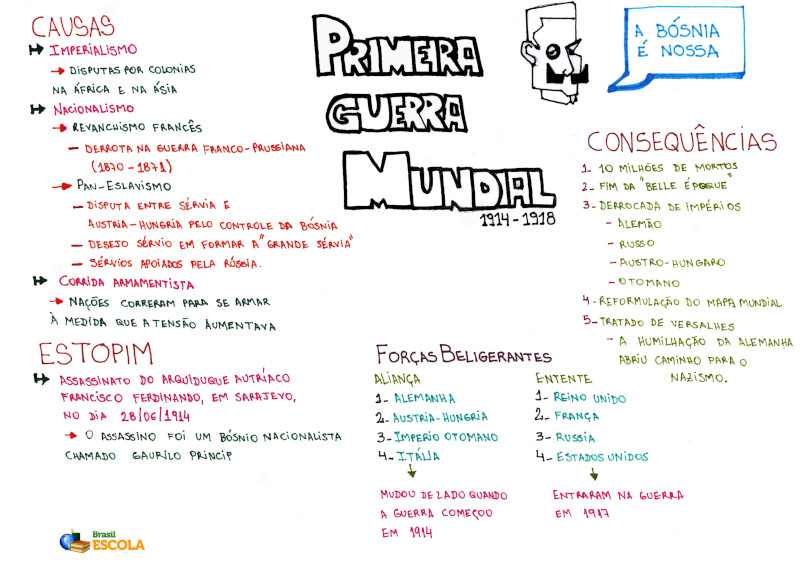 CAUSAS
IMPERIALISMO
DISPUTAS POR COLONIAS
NA ÁFRICA E NA ÁSIA
NACIONALISMO
REVANCHISMO FRANCÊS
- DERROTA NA GUERRA FRANCO-PRUSSIANA
(1870-1871)
PAN-ESLAVISMO
- DISPUTA ENTRE SÉRVIA E
AUSTRIA-HUNGRIA PELO CONTROLE DA BÓSNIA
- DESEJO SÉRVIO EM FORMAR A "GRANDE SÉRVIA"
- SÉRVIOS APOIADOS PELA RÚSSIA.
CORRIDA ARMAMENTISTA
NAÇÕES CORRERAM PARA SE ARMAR
À MEDIDA QUE A TENSÃO AUMENTAVA
ESTOPIM
ASSASSINATO DO ARQUIDUQUE AUTRÍACO
FRANCISCO FERDINANDO, EM SARAJEVO,
NO DIA 28/06/1914
O ASSASSINO FOI UM BÓSNIO NACIONALISTA
CHAMADO GAURILO PRINCIP
PRIMEIRA
GUERRA
MUNDIAL
1914-1918
A BÓSNIA
É NOSSA
CONSEQUÊNCIAS
1- 10 MILHÕES DE MORTOS
2- FIM DA "BELLE ÉPOQUE"
3- DERROCADA DE IMPÉRIOS
- ALEMÃO
- RUSSO
- AUSTRO-HUNGARO
- OTOMANO
4- REFORMULAÇÃO DO MAPA MUNDIAL
5- TRATADO DE VERSALHES
- A HUMILHAÇÃO DA ALEMANHA
ABRIU CAMINHO PARA O
NAZISMO.
FORÇAS BELIGERANTES
ALIANÇA
1- ALEMANHA
2- AUSTRIA-HUNGRIA
3- IMPERIO OTOMANO
4- ITÁLIA
MUDOU DE LADO QUANDO
A GUERRA COMEÇOU
EM 1914
ENTENTE
1- REINO UNIDO
2- FRANÇA
3- RUSSIA
4- ESTADOS UNIDOS
ENTRARAM NA GUERRA
EM 1917
Brasil
ESCOLA